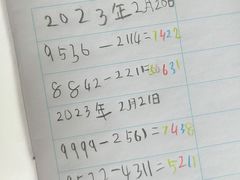 2023年2月20日
9536-2114=7422
8842-2211=6631
2023年 2月21日
9999-2561=7438
-4311=5211